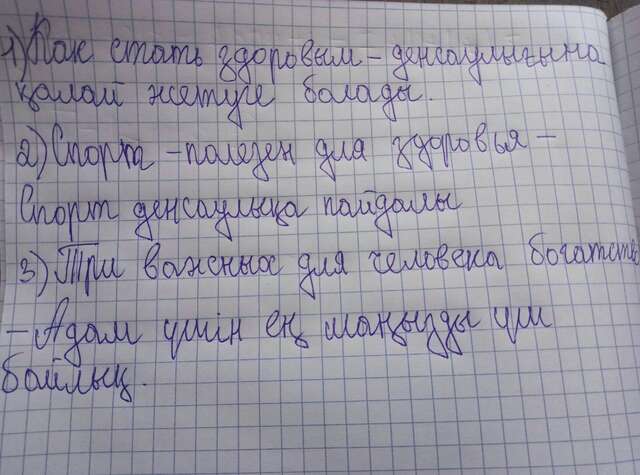 1) Как стать здоровым - денсаулығына
қалай жетуге болады.
2) Спорта - полезен для здоровья -
Спорт денсаулыққа пайдалы
3) Три важных для человека богатств
- Адам үшін ең маңызды үш
байлық.